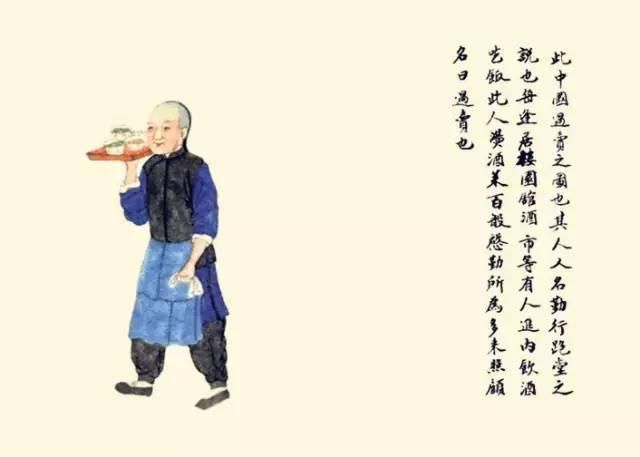 此中國過賣之圖也其人人名勤行跑堂之
說也每逢居樓園館酒市等有人進內飲酒
吃飯此人酒菜百般慇勤所為多来照顧
名曰過賣也